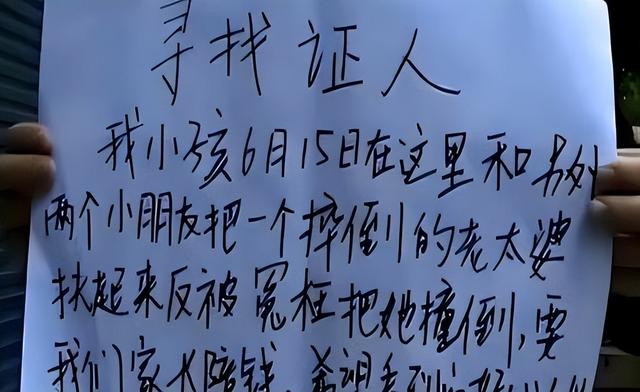 寻找证人
我小孩6月15日在这里和另外
两个小朋友把一个摔倒的老太婆
扶起来反被冤枉把她撞倒,要
我们家长赔钱,希望看到